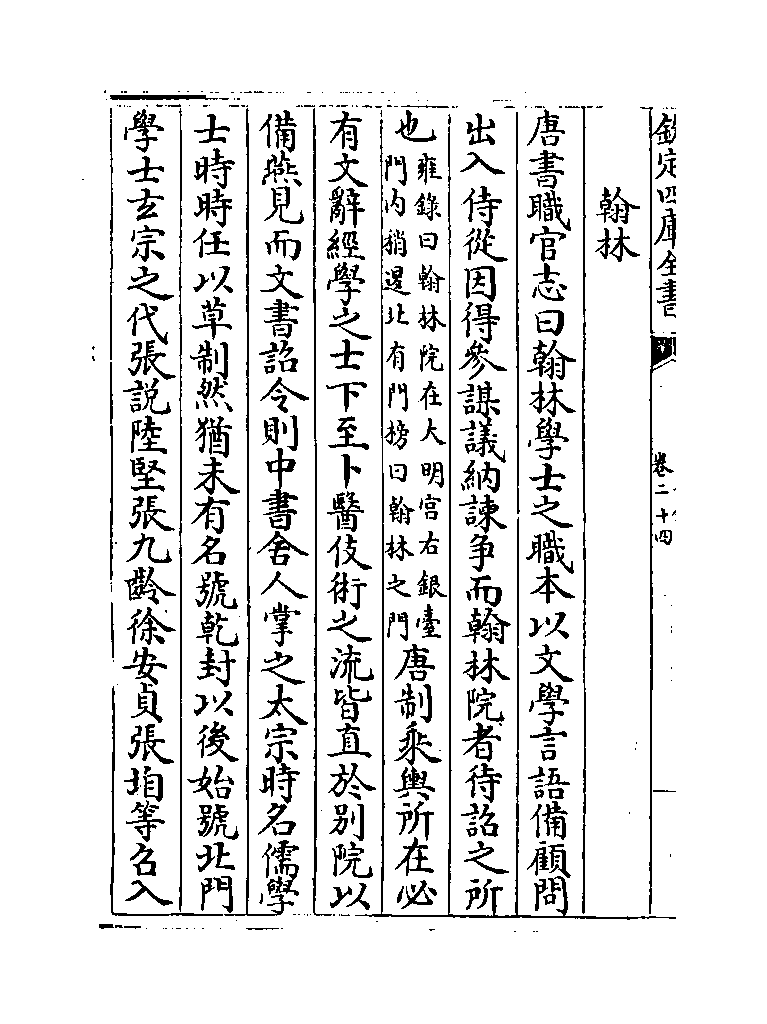 欽定四庫全書
卷二十四
翰林
唐書職官志曰翰林學士之職本以文學言語備顧問
出入侍從因得參謀議納諫争而翰林院者待詔之所
也雍錄曰翰林院在大明宫右銀臺門内稍退北有門榜曰翰林之門唐制乘輿所在必
有文辭經學之士下至卜醫伎術之流皆直於别院以
備燕見而文書詔令則中書舍人掌之太宗時名儒學
士時時任以草制然猶未有名號乾封以後始號北門
學士玄宗之代張説陸堅張九齡徐安貞張垍等召入